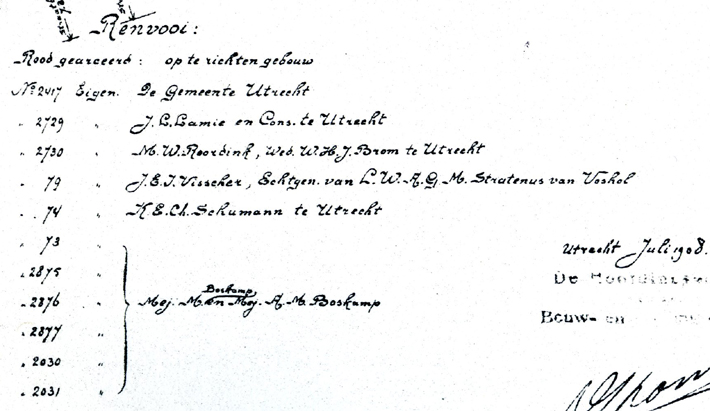 Renvooi:
Rood gearceerd: op te richten gebouw
No 2417 Eigen. De Gemeente Utrecht
" 2729 " J.L. Lamie en Cons. te Utrecht
" 2730 " M.W. Roordink, Wed. W.H.J. Brom te Utrecht
" 79 " J.E.I. Visscher, Echtgen. van L.W.A.G.M. Stratenus van Voshol
" 74 " K.E.Ch. Schumann te Utrecht
" 73 "
" 2875 "
Boskamp
" 2876 " Mej. M. en Mej. A.M. Boskamp
" 2877 "
" 2030 "
" 2031 "
Utrecht Juli 1908.
De
Bouw- en